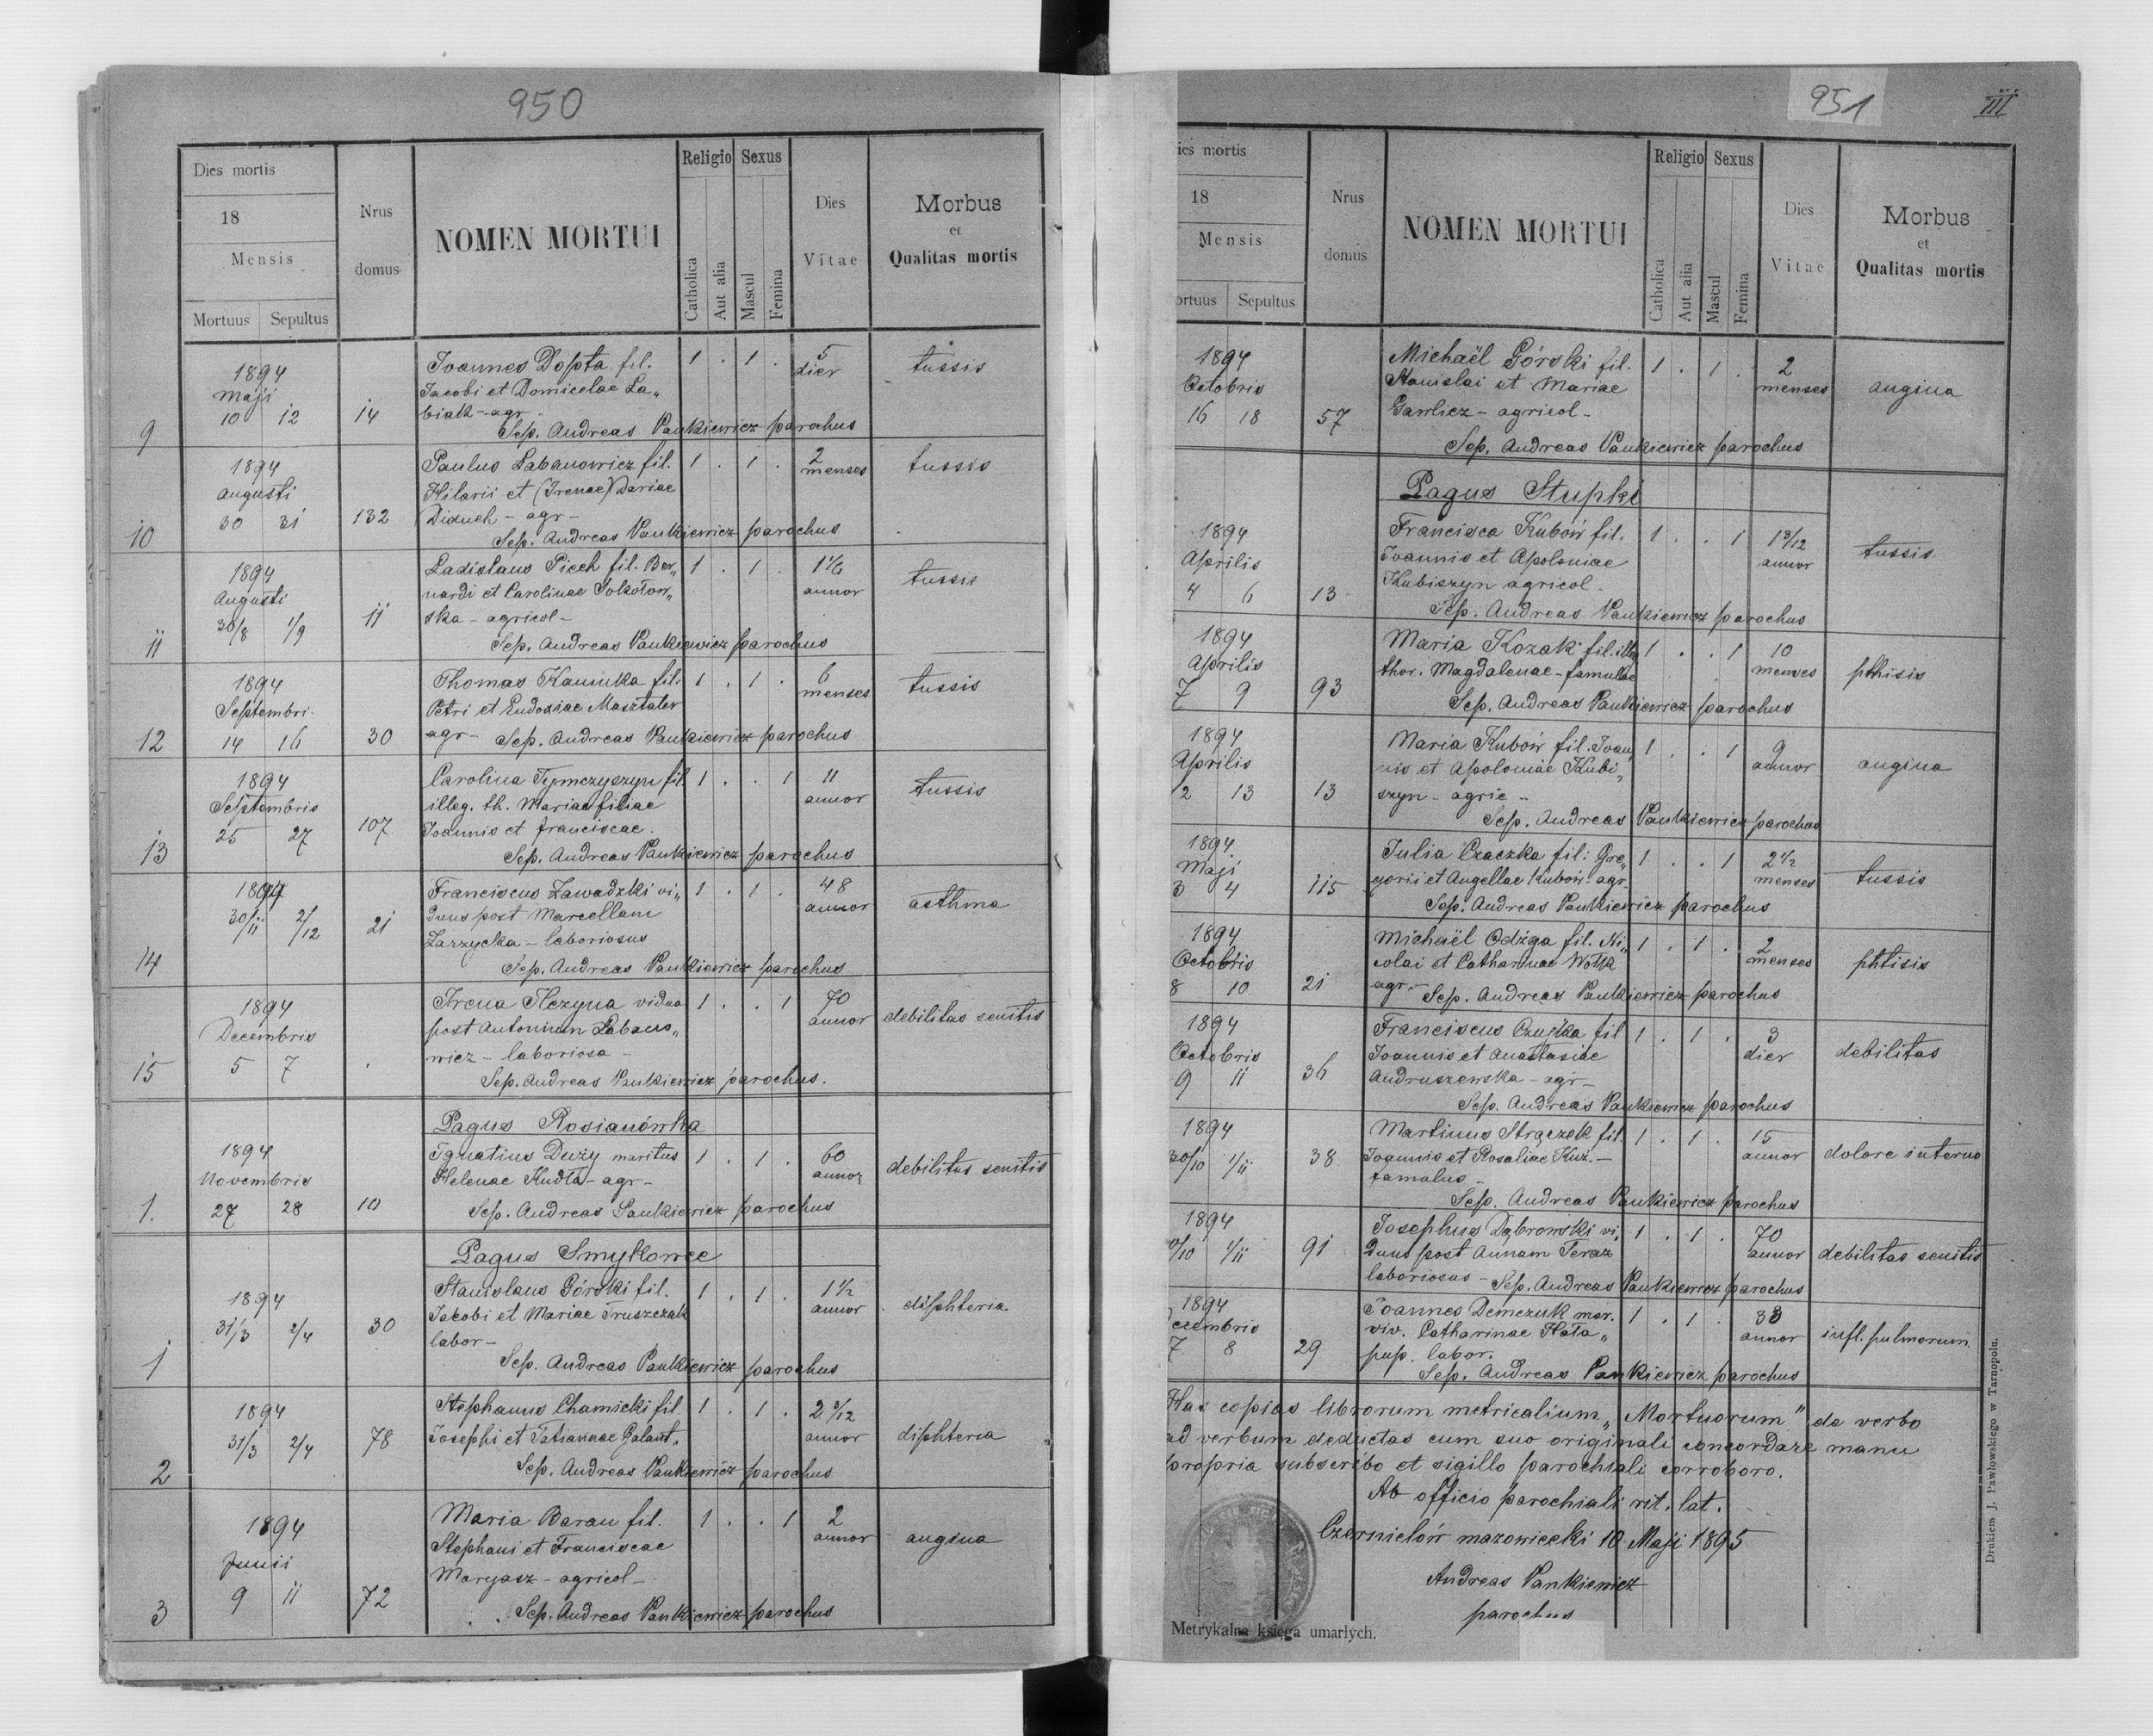 950
Dies mortis
18
Mensis
Mortuus Sepultus
Nrus domus
NOMEN MORTUI
Religio Sexus
Catholica Aut alia Mascul Femina
Dies Vitae
Morbus
et
Qualitas mortis
1894 Joannes Dopta fil. 1 . 1 . 5 tussis
Maji Jacobi et Domicelae La„ dier
9 10 12 14 biak - agr -
Sep. Andreas Pankiewicz parochus
1894 Paulus Labanowicz fil. 1 . 1 . 2 tussis
Augusti Hilarii et (Irenae) Dariae menses
10 30 31 132 Diduch - agr -
Sep. Andreas Pankiewicz parochus
1894 Ladislaus Piech fil. Ber„ 1 . 1 . 1 1/6 tussis
Augusti nardi et Carolinae Sokołow„ annor
11 30/8 1/9 11 ska - agricol -
Sep. Andreas Pankiewicz parochus
1894 Thomas Kaminka fil. 1 . 1 . 6 tussis
Septembri Petri et Eudoxiae Masztaler menses
12 14 16 30 agr - Sep. Andreas Pankiewicz parochus
1894 Carolina Tymczyszyn fil. 1 . . 1 11 tussis
Septembris illeg. th. Mariae filiae annor
13 25 27 107 Joannis et Franciscae.
Sep. Andreas Pankiewicz parochus
1894 Franciscus Zawadzki vi„ 1 . 1 . 48 asthma
30/11 2/12 21 duus post Marcellam annor
14 Zarzycka - laboriosus
Sep. Andreas Pankiewicz parochus
1894 Irena Hezyna vidua 1 . . 1 70 debilitas senitis
Decembris post Antonium Labano„ annor
15 5 7 . wicz - laboriosa -
Sep. Andreas Pankiewicz parochus.
Pagus Rosianówka
1894 Ignatius Duży maritus 1 . 1 . 60 debilitas senitis
Novembris Helenae Kudła - agr - annor
1. 27 28 10 Sep. Andreas Pankiewicz parochus
Pagus Smykowce
1894 Stanislaus Górski fil. 1 . 1 . 1 1/2 diphteria
31/3 2/4 30 Jakobi et Mariae Truszczak annor
1 labor -
Sep. Andreas Pankiewicz parochus
1894 Stephanus Chamicki fil 1 . 1 . 2 /12 diphteria
31/3 2/4 78 Josephi et Tatiannae Galant. annor
2 Sep. Andreas Pankiewicz parochus
1894 Maria Baran fil. 1 . . 1 2 angina
Junii Stephani et Franciscae annor
3 9 11 72 Maryasz - agricol -
Sep. Andreas Pankiewicz parochus
951
III
ies mortis
18
Mensis
ortuus Sepultus
Nrus domus
NOMEN MORTUI
Religio Sexus
Catholica Aut alia Mascul Femina
Dies Vitae
Morbus
et
Qualitas mortis
1894 Michaël Górski fil. 1 . 1 . 2 angina
Octobris Stanislai et Mariae menses
16 18 57 Gawlicz - agricol -
Sep. Andreas Pankiewicz parochus
Pagus Stupki
1894 Francisca Kubów fil. 1 . . 1 1 3/12 tussis
Aprilis Joannis et Apoloniae annor
4 6 13 Kubiszyn agricol.
Sep. Andreas Pankiewicz parochus
1894 Maria Kozak fil. illeg 1 . . 1 10 phtisis
Aprilis thor. Magdalenae - famulae menses
7 9 93 Sep. Andreas Pankiewicz parochus
1894 Maria Kubów fil. Joan„ 1 . . 1 9 angina
Aprilis nis et Apoloniae Kubi„ annor
2 13 13 szyn - agric -
Sep. Andreas Pankiewicz parochus
1894 Julia Czaczka fil: Gre„ 1 . . 1 2 1/2 tussis
Maji gorii et Angellae Kubow - agr. menses
3 4 115 Sep. Andreas Pankiewicz parochus
1894 Michaël Odżga fil. Ni„ 1 . 1 . 2 phtisis
Octobris colai et Catharinae Wołk menses
8 10 21 agr. - Sep. Andreas Pankiewicz parochus
1894 Franciscus fil 1 . 1 . 3 debilitas
Octobris Joannis et Anastasiae dier
9 11 36 Andruszewska - agr -
Sep. Andreas Pankiewicz parochus
1894 Martinus Strączek fil. 1 . 1 . 15 dolore interno
30/10 1/11 38 Joannis et Rosaliae Kuź. - annor
famulus -
Sep. Andreas Pankiewicz parochus
1894 Josephus Dąbrowski vi„ 1 . 1 . 70 debilitas senitis
/10 1/11 91 duus post Annam Teraz annor
laboriosus - Sep. Andreas Pankiewicz parochus
1894 Joannes Demczuk mar. 1 . 1 . 33 infl. pulmorum.
cembris viv. Catharinae Hała„ annor
7 8 29 pup. labor.
Sep. Andreas Pankiewicz parochus
Has copias librorum metricalium „Mortuorum" de verbo
ad verbum deductas cum suo originali concordare manu
propria subscribo et sigillo parochiali corroboro.
Ab officio parochiali rit. lat.
Czernielów mazowiecki 10 Maji 1895
Andreas Pankiewicz
parochus
Metrykalna księga umarłych.
Drukiem J. Pawłowskiego w Tarnopolu.